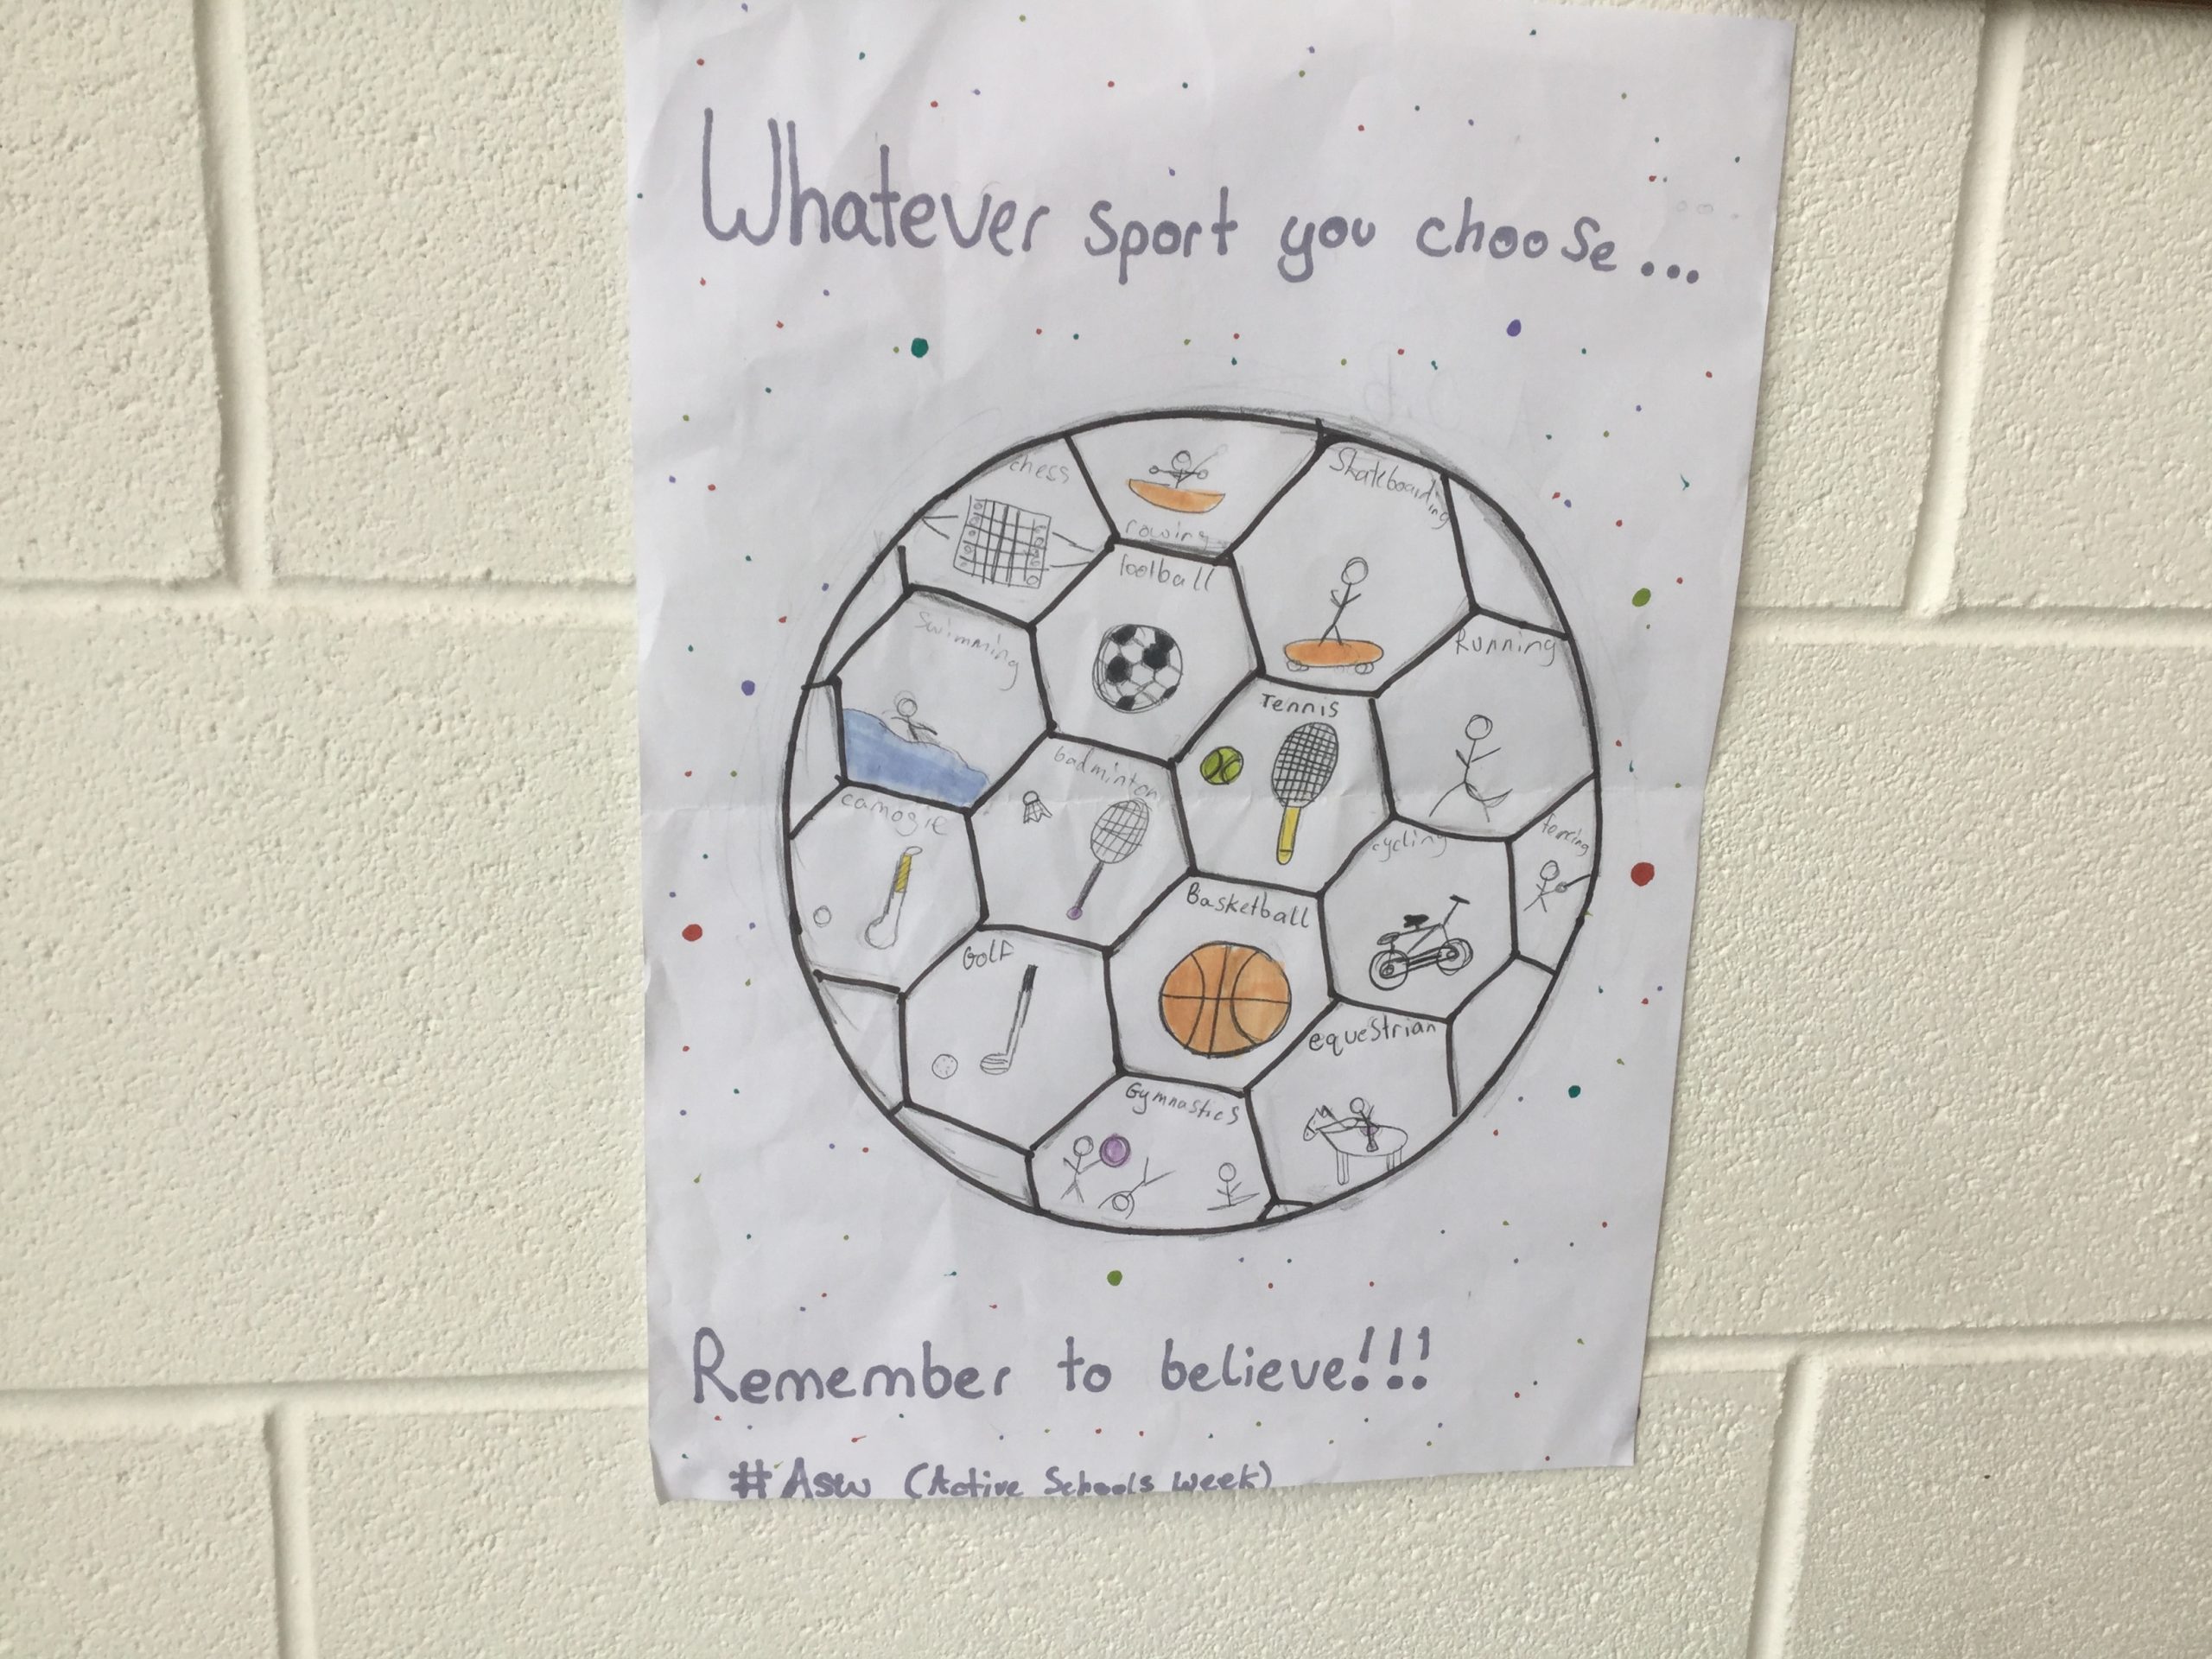 Whatever sport you choose...
chess
rowing
Skateboarding
football
Swimming
Running
Tennis
badminton
camogie
cycling
fencing
Basketball
Golf
equestrian
Gymnastics
Remember to believe!!!
#Asw (Active Schools Week)